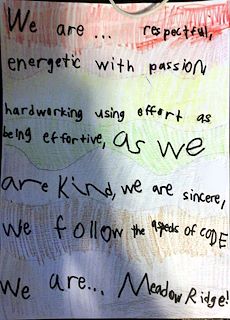 We are... respectful,
energetic with passion
hardworking using effort as
being effortive, as we
are kind, we are sincere,
We follow the aspects of CODE
We are... Meadow Ridge!